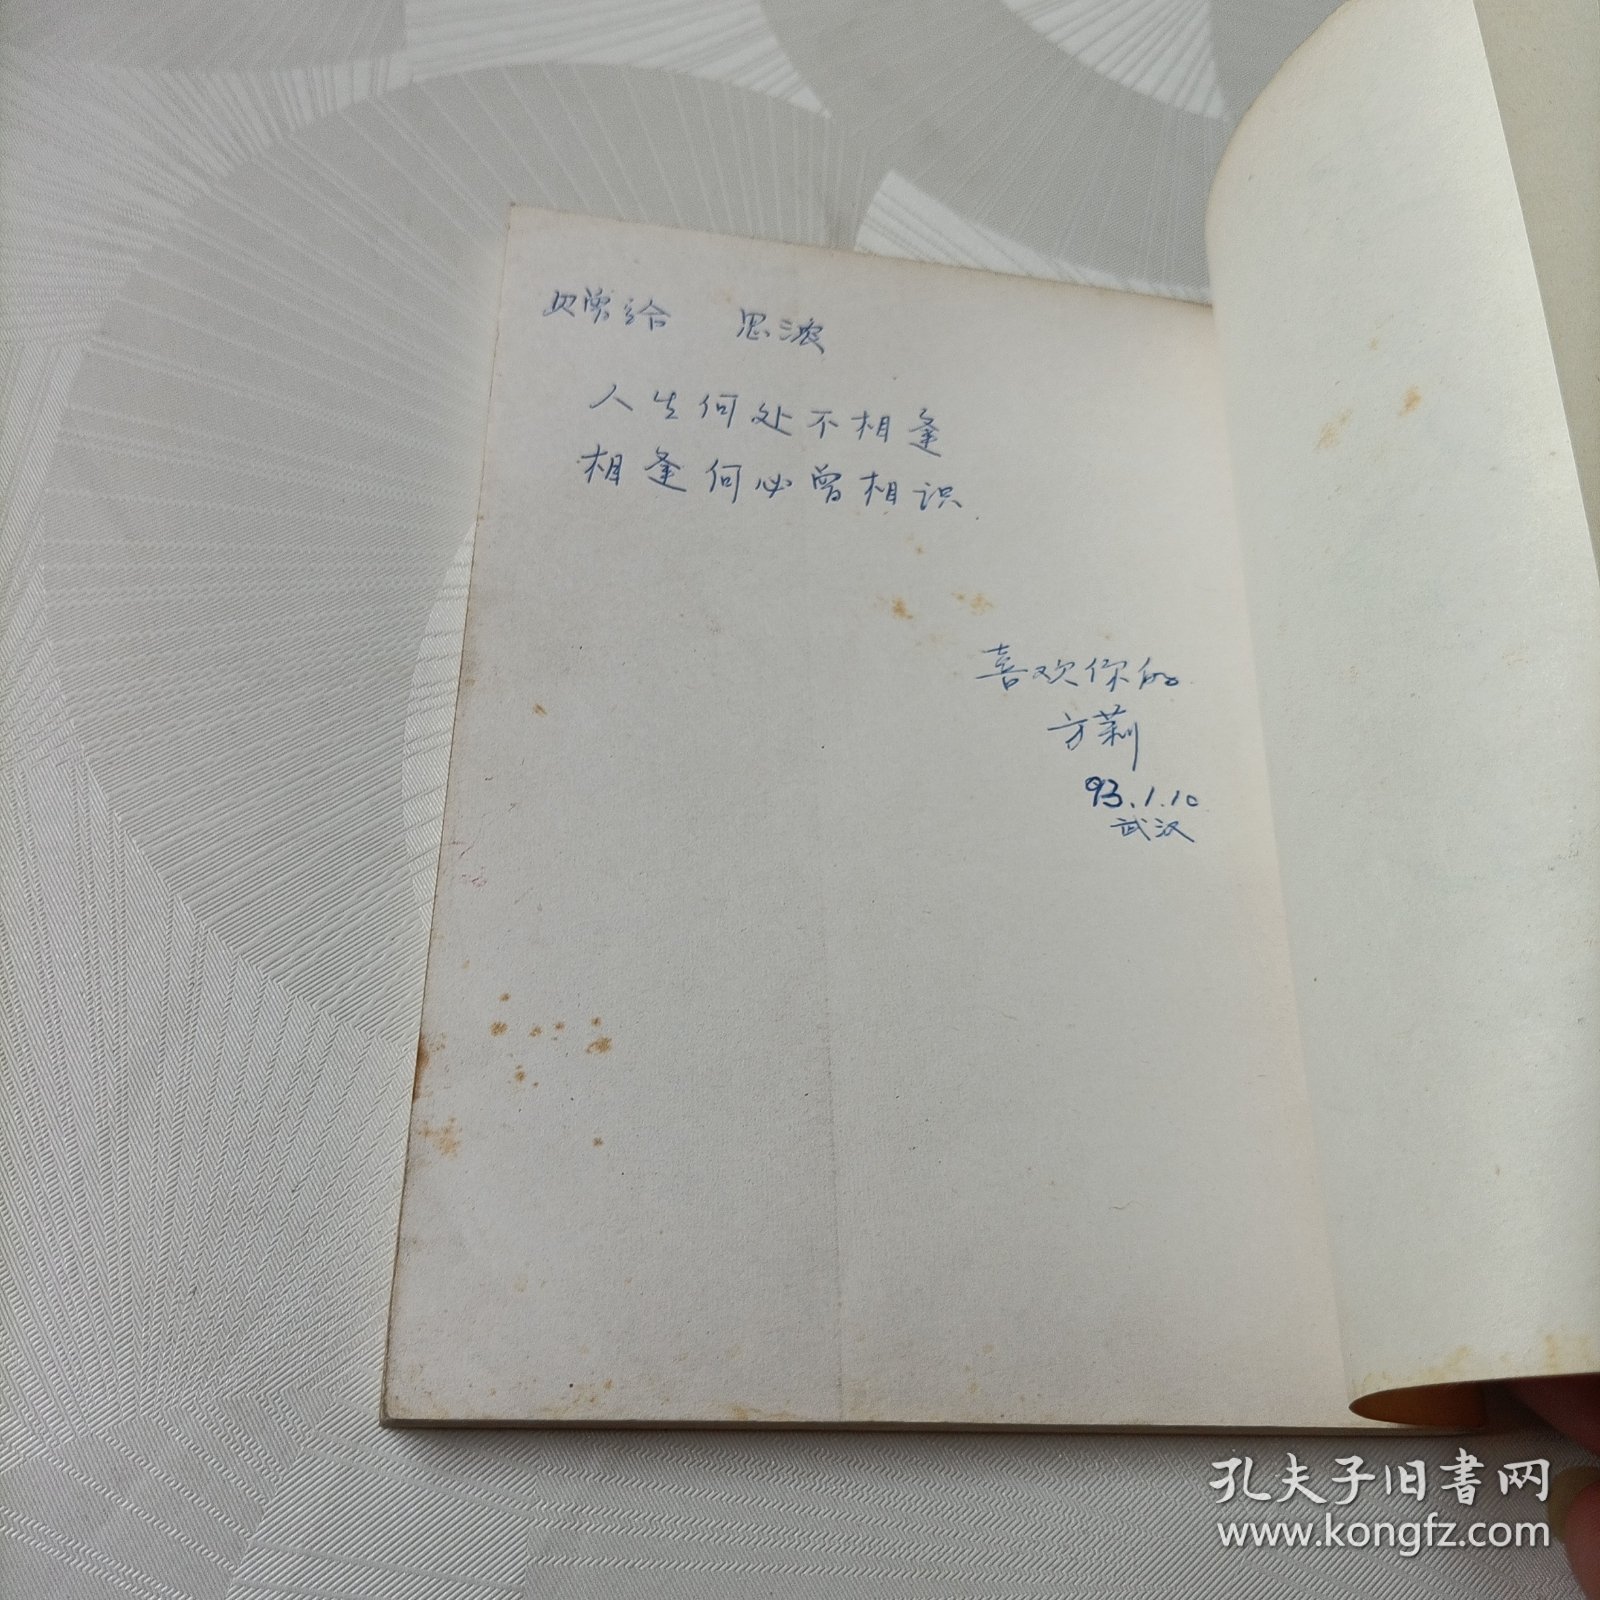 赠给 思浓
人生何处不相逢
相逢何必曾相识
喜欢你的
方莉
93.1.10
武汉
孔夫子旧书网
www.kongfz.com